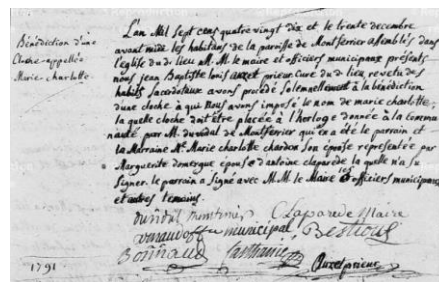 Bénédiction d'une
Cloche appellée
Marie-charlotte.
L'an Mil sept cens quatre vingt dix et le trente decembre
avant midi les habitans de la paroisse de Montferrier assemblés dans
l'eglise du di lieu M.M. le maire et officiers municipaux présents
nous jean Baptiste louis auzet prieur Curé du di lieu revetu des
habits Sacerdotaux avons procédé Solemnellement à la bénédiction
d'une cloche à qui nous avons imposé le nom de marie charlotte,
la quelle cloche doit être placée à l'horloge donnée à la commu
nauté par M. duvidal de Montferrier qui en a été le parrain et
la Marraine Me. Marie charlotte chardon Son épouse représentée par
Marguerite domergue épouse d'antoine claparède la quelle n'a su
Signer. le parrain a Signé avec M.M. le Maire les officiers municipaux
et autres temoins.
duvidal Montferrier Claparede Maire
municipal Bestioul
Bonnaud
Auzet prieur
1791